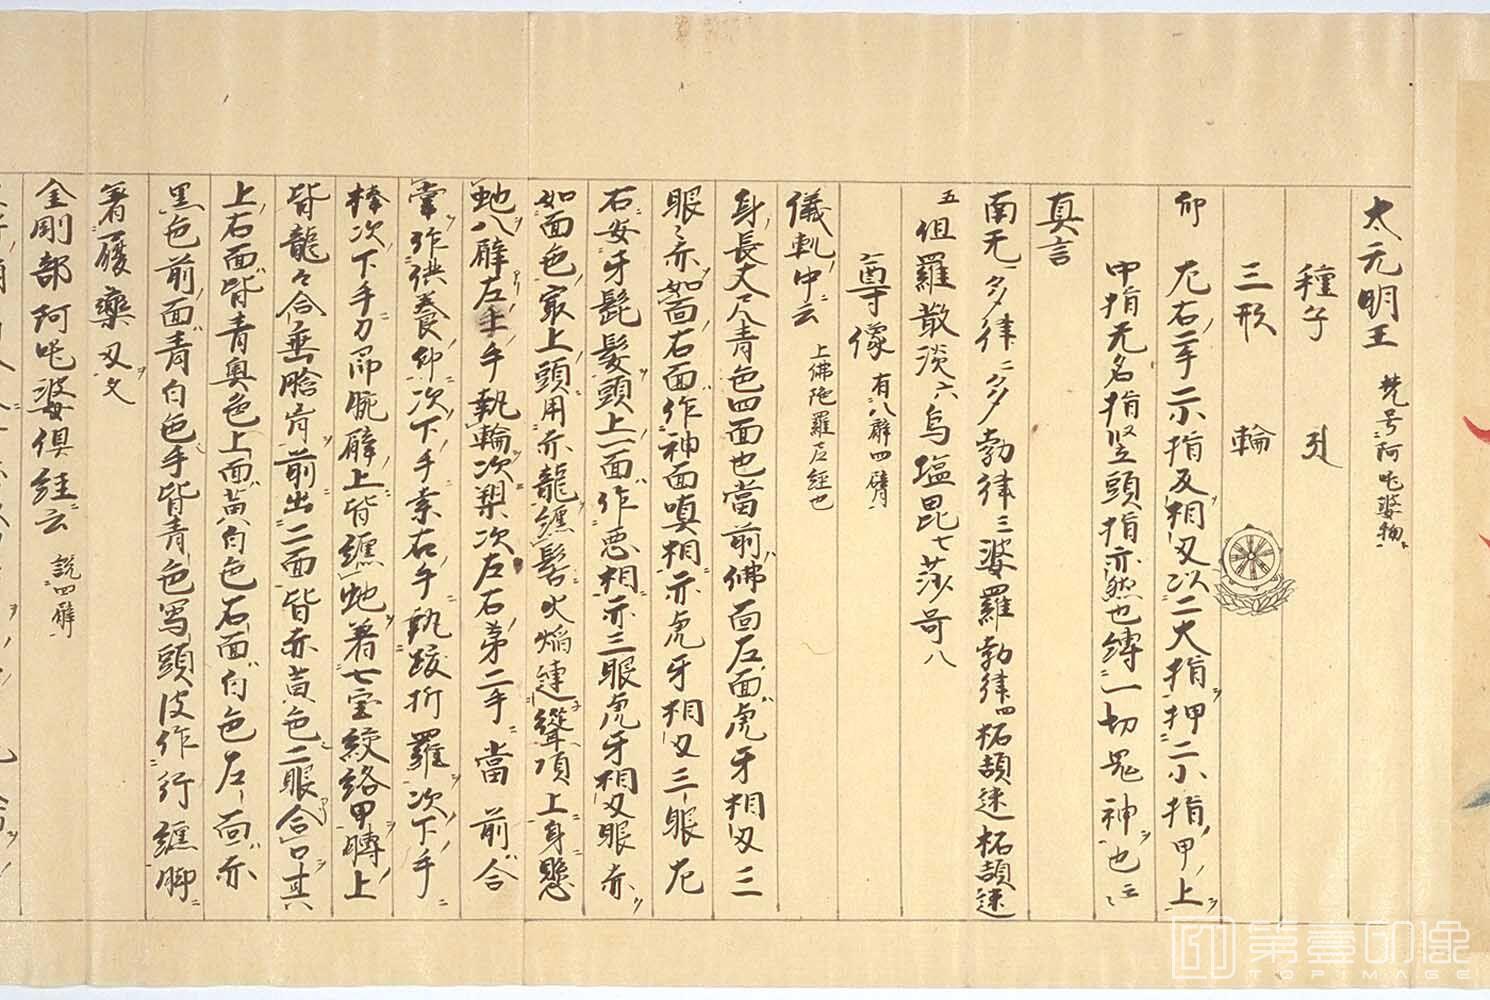 太元明王 梵号阿吒婆物
種子 引
三形 輪
印 左右二手示指反相叉以二大指押二小指甲上
中指无名指竖頭指亦然也縛一切鬼神也云々
真言
南无一多律二多勃律三婆羅勃律四柘頡迷柘頡迷
五但羅散淡六烏塩毘七莎哥八
尊像 有八臂四臂
儀軌中云 上佛陀羅尼經也
身長丈尺青色四面也當前佛面左面虎牙相叉三
眼々赤如面右面作神面嗔相亦虎牙相叉三眼左
右安牙髭髪頭上一面作悪相亦三眼虎牙相叉眼赤
如面色最上頭用赤龍纏髻火焔連聳項上身懸
虵八臂左上手執輪次槊次左右第二手當前合
掌作供養印次下手索右手執跋折羅次下手
棒次下手刀印腕臂上皆纏虵着七宝絞絡甲膊上
皆龍々合垂膽前出二面皆赤黄色二眼合口其
上右面皆青奥色上面黄白色右面白色左面赤
黒色前面青白色手皆青色写頭皮作行纏脚
著履藥叉文
金剛部阿吒婆俱經云 説四臂